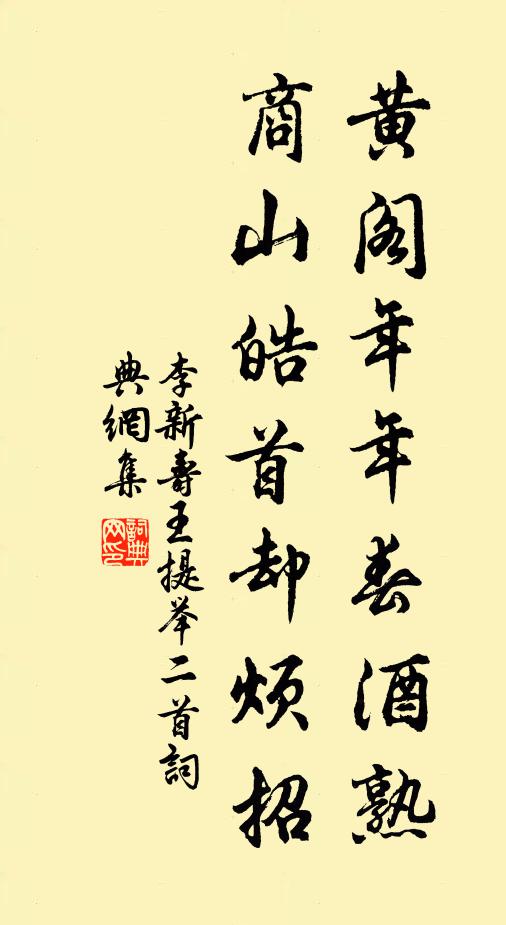 黃閣年年春酒熟
商山皓首却煩招
李新壽王提举二首詞
典網集
詞典
网印